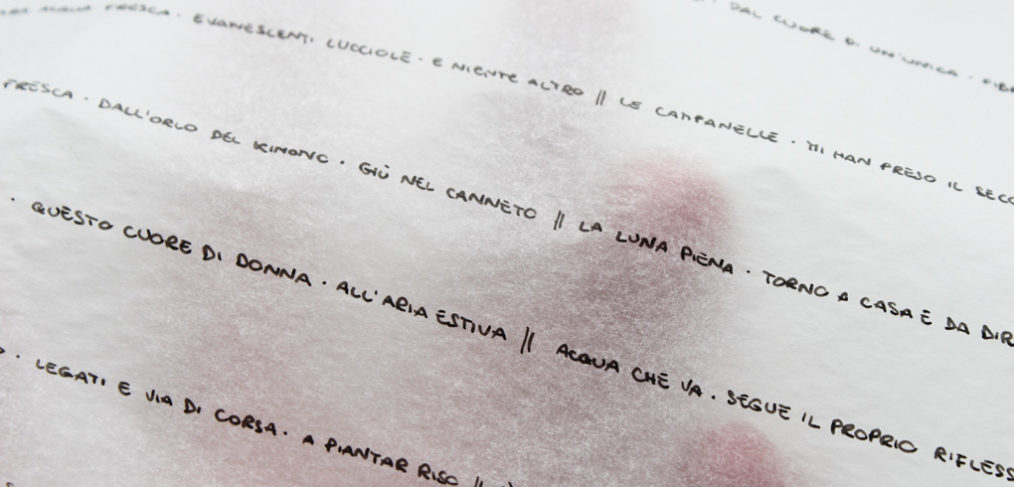 DAL CUORE DI UN'UNICA ·
ACQUA FRESCA · EVANESCENTI LUCCIOLE · E NIENTE ALTRO || LE CAMPANELLE · MI HAN PRESO IL SECC
FRESCA · DALL'ORLO DEL KIMONO · GIÙ NEL CANNETO || LA LUNA PIENA · TORNO A CASA E DA DIR
· QUESTO CUORE DI DONNA · ALL'ARIA ESTIVA || ACQUA CHE VA · SEGUE IL PROPRIO RIFLESS
· LEGATI E VIA DI CORSA · A PIANTAR RISO ||